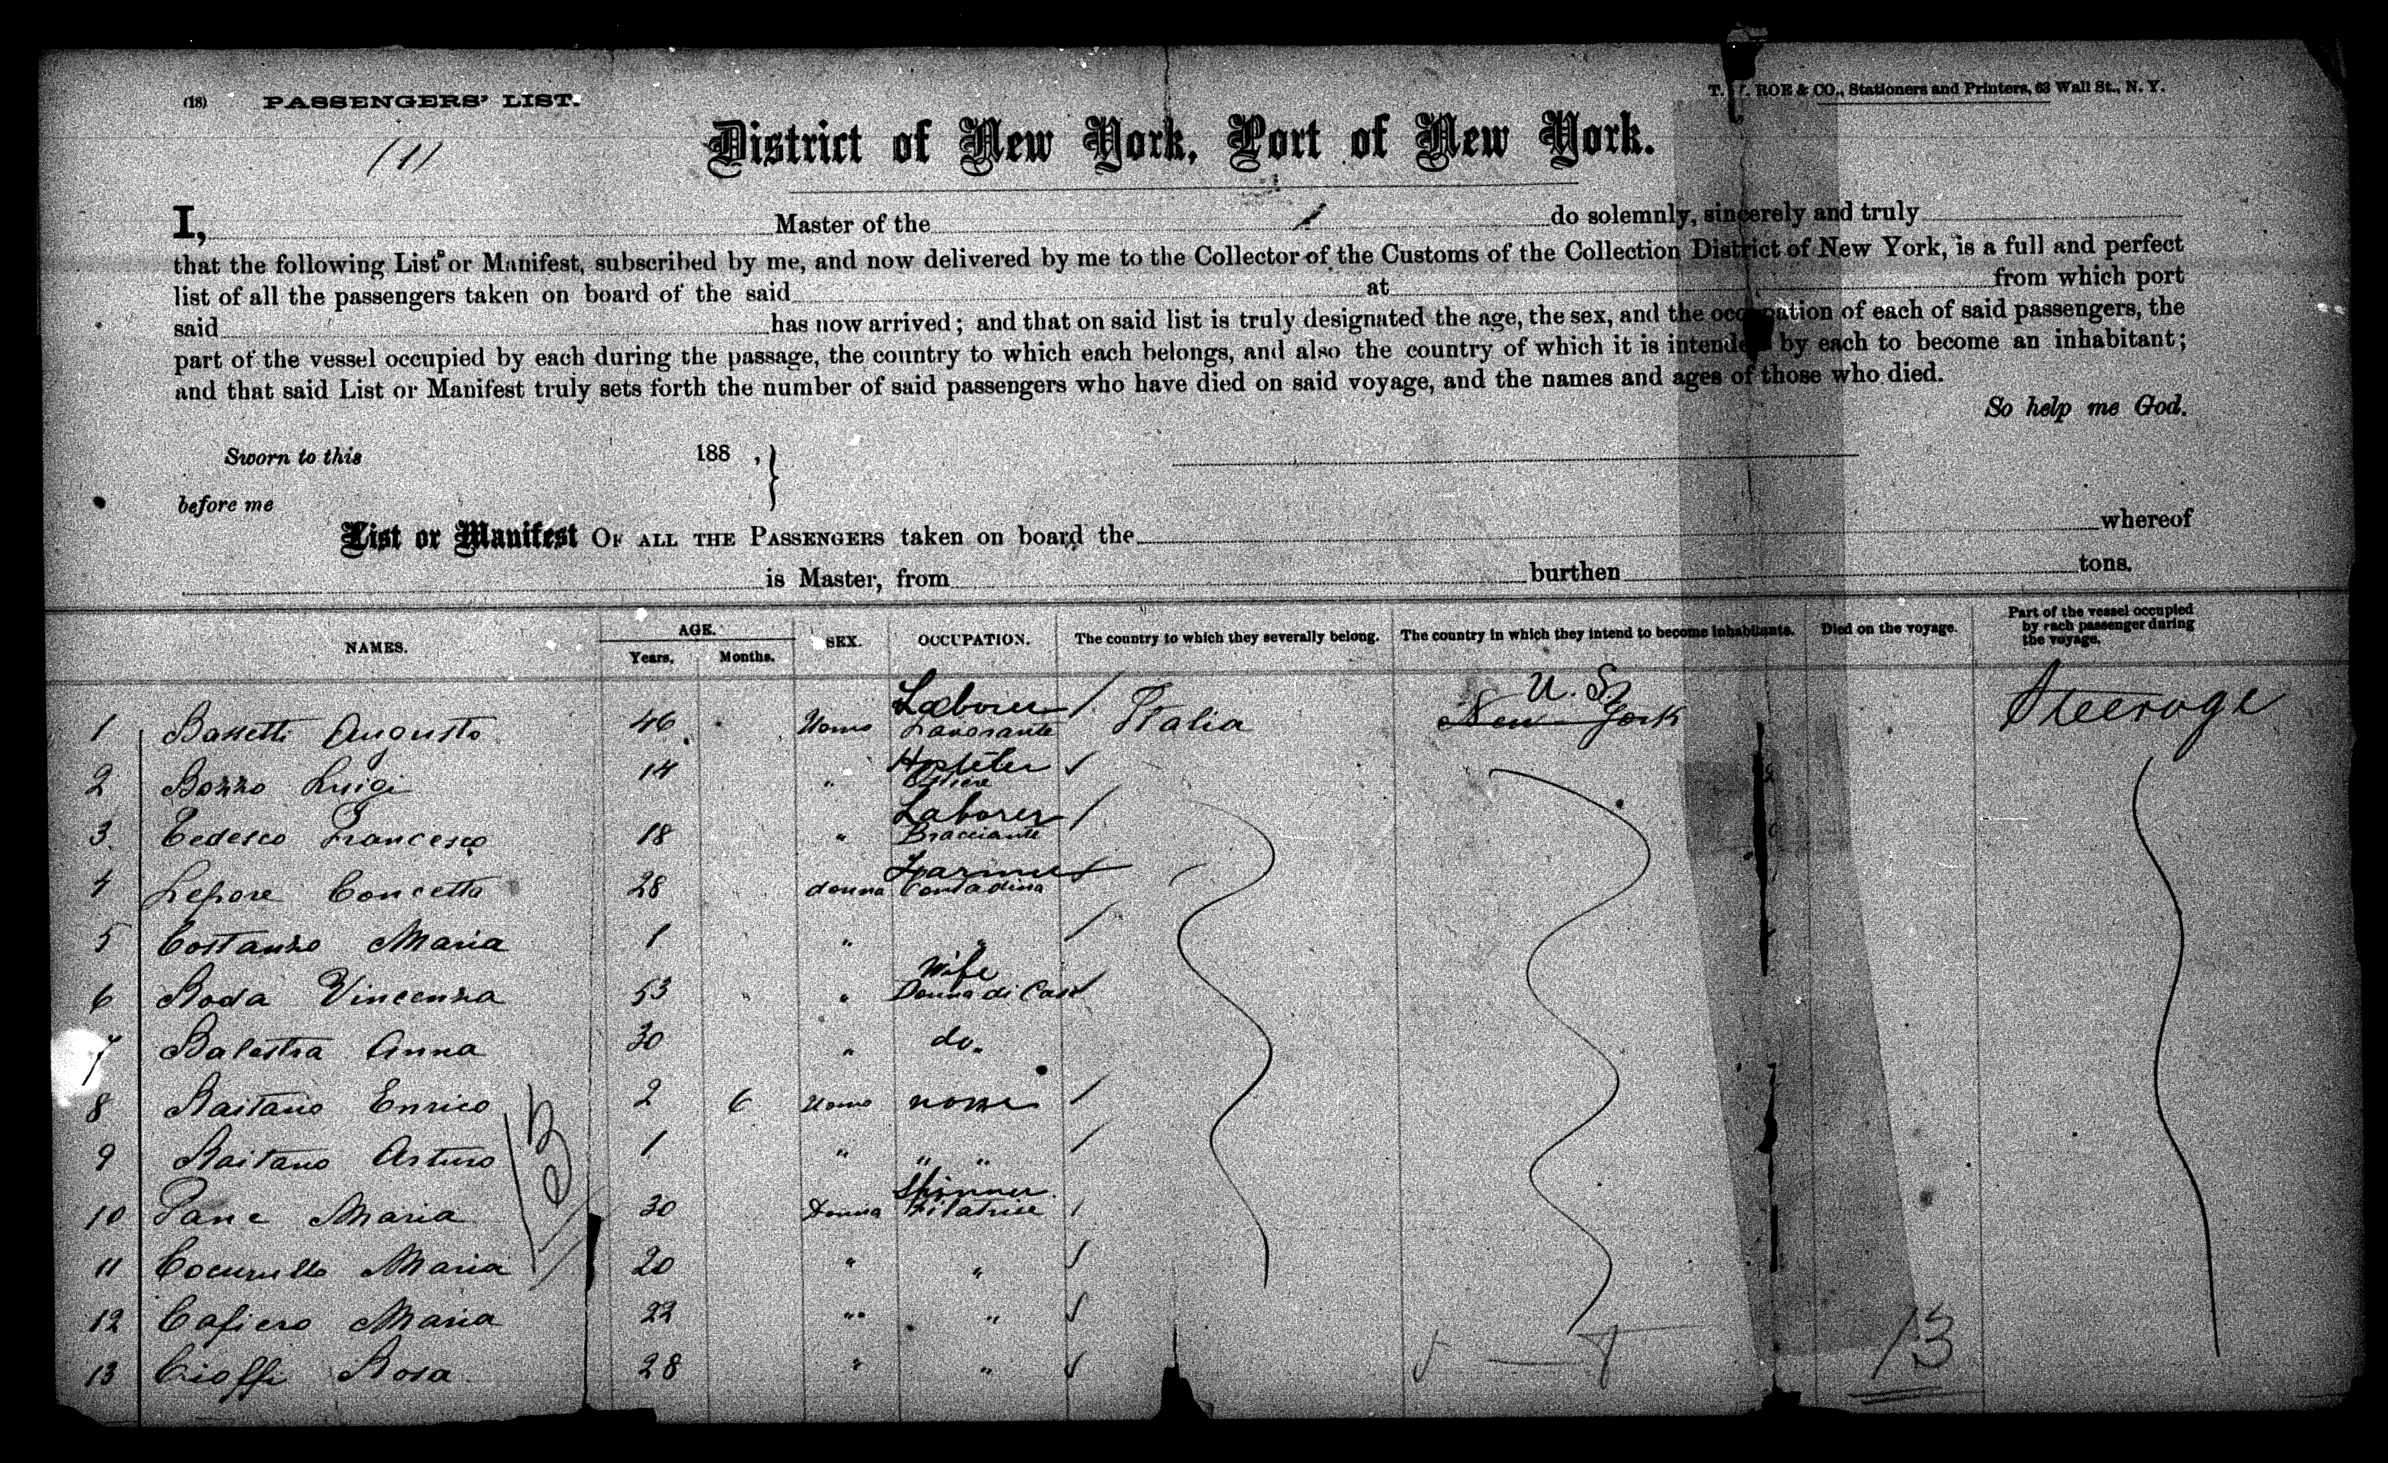 (18) PASSENGERS' LIST.
T. & CO., Stationers and Printers, 63 Wall St., N. Y.
111
District of New York, Port of New York.
I, Master of the do solemnly, sincerely and truly
that the following List or Manifest, subscribed by me, and now delivered by me to the Collector of the Customs of the Collection District of New York, is a full and perfect
list of all the passengers taken on board of the said at from which port
said has now arrived; and that on said list is truly designated the age, the sex, and the occupation of each of said passengers, the
part of the vessel occupied by each during the passage, the country to which each belongs, and also the country of which it is intended by each to become an inhabitant;
and that said List or Manifest truly sets forth the number of said passengers who have died on said voyage, and the names and ages of those who died.
So help me God.
Sworn to this 188 ,
before me
List or Manifest OF ALL THE PASSENGERS taken on board the whereof
is Master, from burthen tons.
NAMES. AGE. Years. Months. SEX. OCCUPATION. The country to which they severally belong. The country in which they intend to become inhabitants. Died on the voyage. Part of the vessel occupied by each passenger during the voyage.
Laborer U. S.
1 Bassetti Augusto 46 Uomo Lavorante Italia New York Steerage
2 Bozzo Luigi 14 "
Laborer
3. Tedesco Francesco 18 " Bracciante
Farmer
4 Lepore Concetta 28 donna Contadina
5 Costanzo Maria 1 " "
Wife
6 Roda Vincenza 53 " Donna di Casa
7 Balestra Anna 30 " do.
8 Raitano Enrico 2 6 Uomo none
9 Raitano Arturo 1 " " "
Spinner
10 Pane Maria 30 Donna Filatrice
11 Cocurullo Maria 20 " "
12 Cafiero Maria 22 " "
13 Cioffi Rosa 28 " "
13